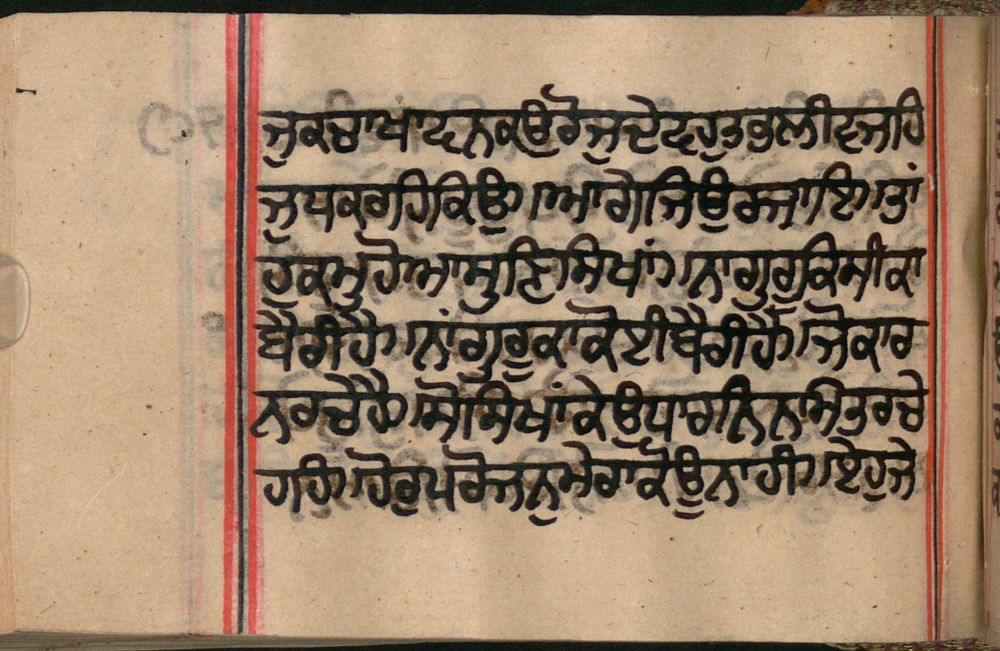 ਜੁਕਚਾਖਾਦਨਕਉਰੋਜੁਦੇਣਹੁਤਭੁਲੀਣਜਹਿ
ਜੁਪਕਰਹਿਕਿਉ। ਆਗੇਜਿਉਰਜਾਇ। ਤਾਂ
ਹੁਕਮੁਹੋਆਸੁਣਿਸਿਖਾਂ। ਨਾਗੁਰੁਕਿਸੀਕਾ
ਬੈਰੀਹੈ। ਨਾਂਗੁਰੂਕਾਕੋਈਬੈਰੀਹੈ। ਜੋਕਾਰ
ਨਰਚੇਹੈ। ਸੋਸਿਖਾਂਕੇਉਧਾਰਨਿਨਾਮਿਤੁਰਚੇ
ਹਹਿ। ਹੋਰੁਪਰੋਜਨੁਮੇਰਾਕੋਉਨਾਹੀ। ਏਹੁਜੇ